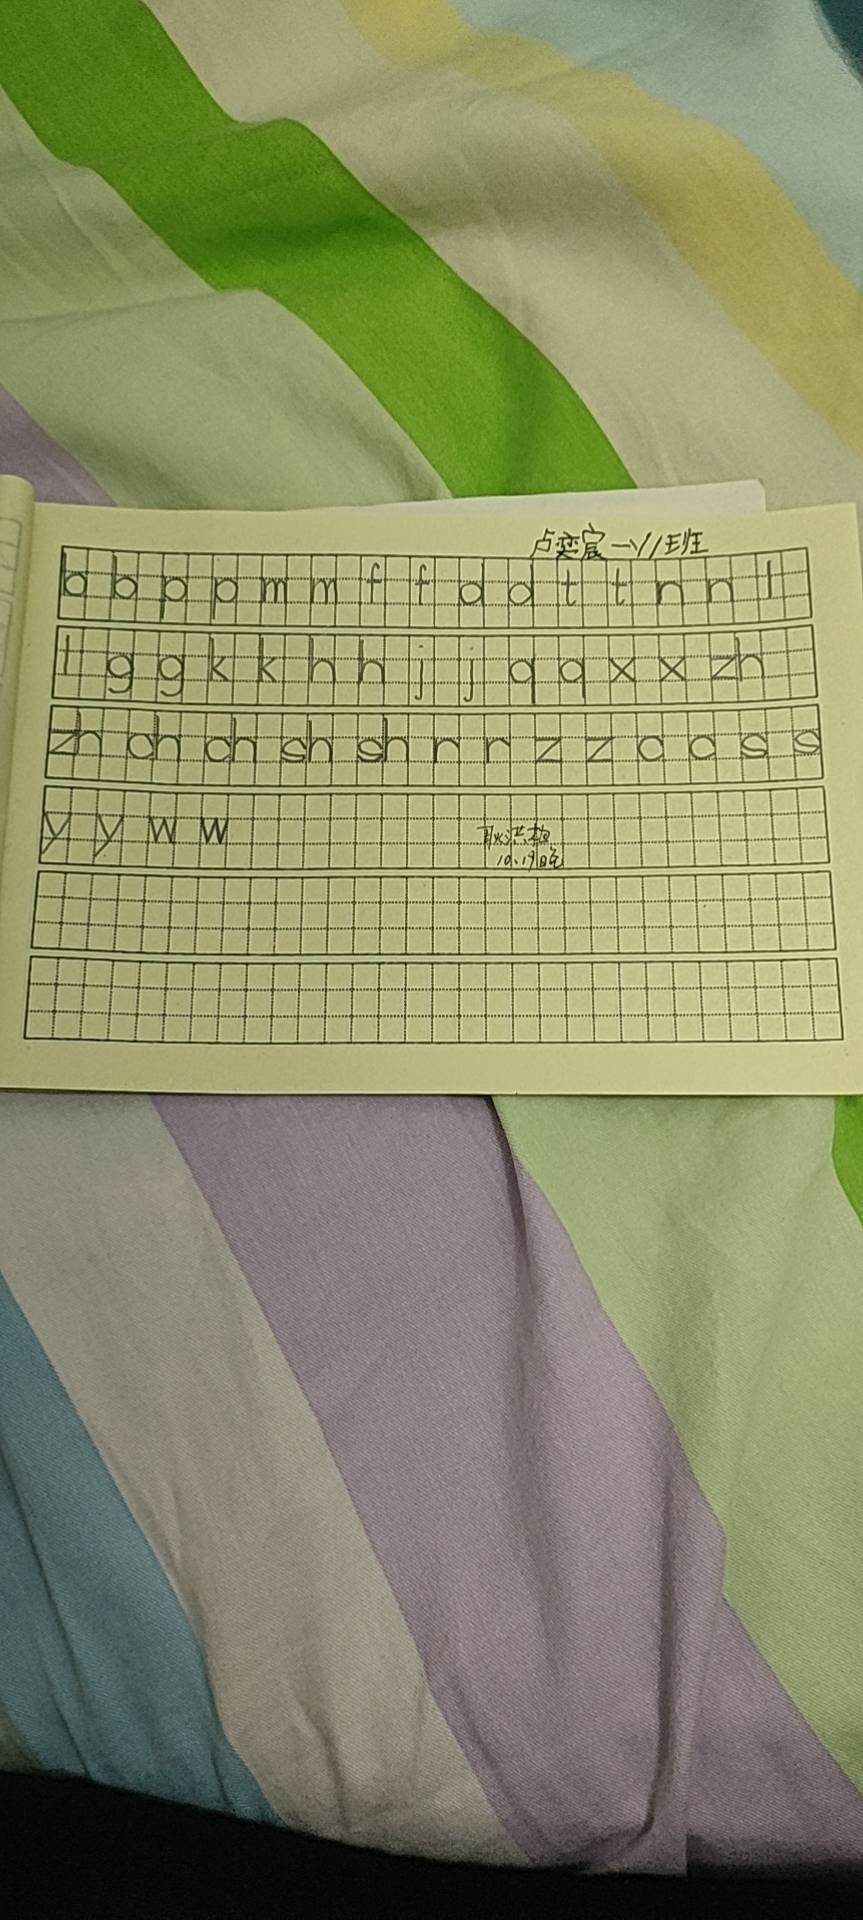 卢奕宸一11班
b b p p m m f f d d t t n n l
l g g k k h h j j q q x x zh
zh ch ch sh sh r r z z c c s s
y y w w
耿洪梅
10.19晚